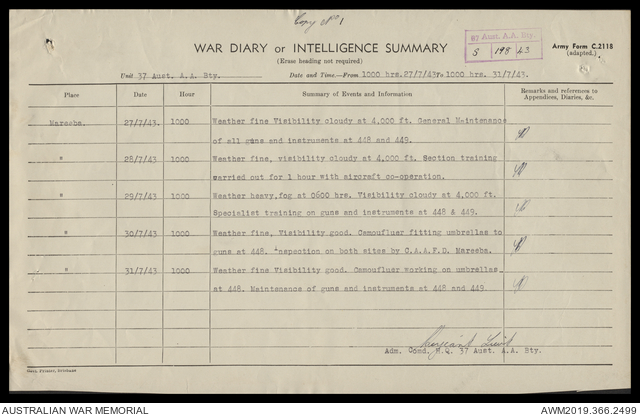 Copy No 1
67 Aust. A.A. Bty.
S 198 43
WAR DIARY or INTELLIGENCE SUMMARY
(Erase heading not required)
Army Form C.2118
(adapted.)
Unit 37 Aust. A.A. Bty.
Date and Time—From 1000 hrs.27/7/43 To 1000 hrs. 31/7/43.
Place Date Hour Summary of Events and Information Remarks and references to Appendices, Diaries, &c.
Mareeba. 27/7/43. 1000 Weather fine Visibility cloudy at 4,000 ft. General Maintenance
of all guns and instruments at 448 and 449.
" 28/7/43. 1000 Weather fine, visibility cloudy at 4,000 ft. Section training
warried out for 1 hour with aircraft co-operation.
" 29/7/43 1000 Weather heavy,fog at 0600 hrs. Visibility cloudy at 4,000 ft.
Specialist training on guns and instruments at 448 & 449.
" 30/7/43 1000 Weather fine, Visibility good. Camoufluer fitting umbrellas to
guns at 448. inspection on both sites by C.A.A.F.D. Mareeba.
" 31/7/43 1000 Weather fine Visibility good. Camoufluer working on umbrellas
at 448. Maintenance of guns and instruments at 448 and 449.
Adm. Comd. H.Q. 37 Aust. A.A. Bty.
AUSTRALIAN WAR MEMORIAL
AWM2019.366.2499